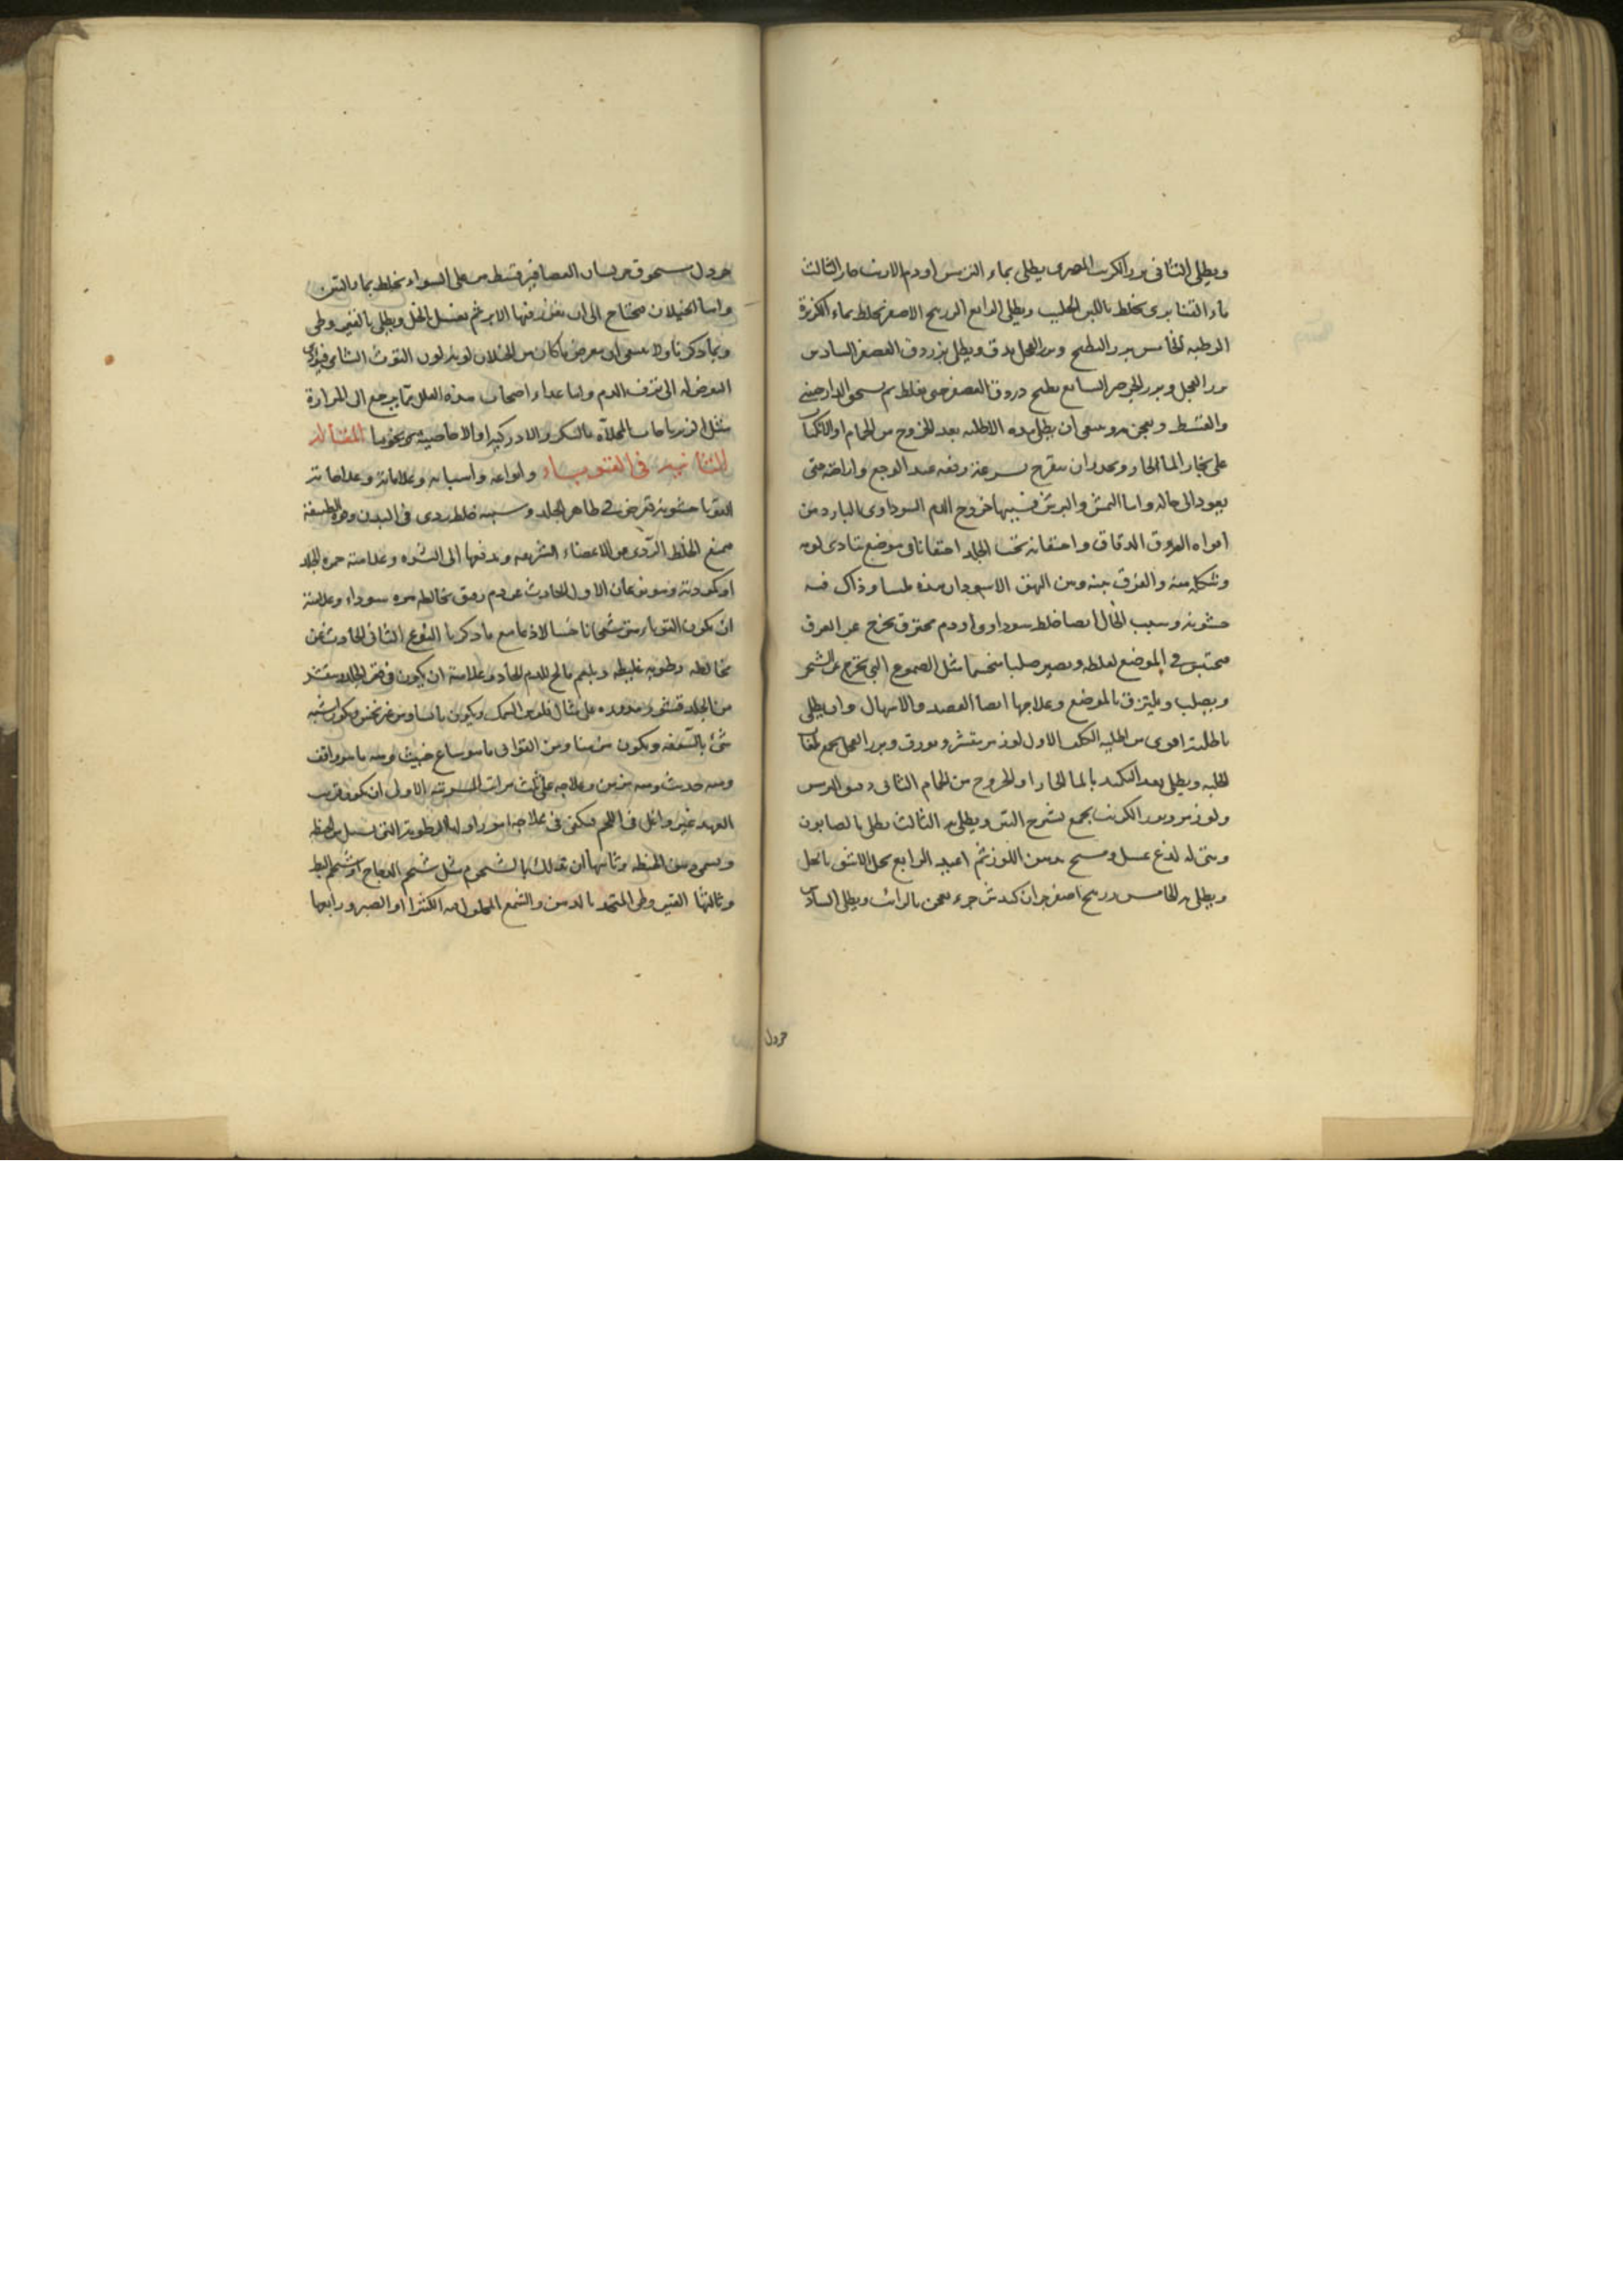 ويطلى الثانى بزر الكرنب المصرى يطلى بماء الترمس او دم الارنب حار الثالث
ماء القنابرى يخلط باللبن الحليب ويطلى الرابع الزرنيخ الاصفر يخلط بماء الكزبرة
الرطبه الخامس بزر البطيخ وبزر الفجل يدق ويطلى بزردق العصفر السادس
بزر الفجل وبزر الجرجير السابع يطبخ دردق العصفر حتى يغلظ ثم يسحق الدارصينى
والقسط ويعجن به وينبغى ان يطلى بهذه الاطليه بعد الخروج من الحمام او الانكباب
على بخار الما الحار ويحذر ان يتقرح بسرعة رفعه عند الوجع واراحته حتى
يعود الى حاله واما النمش والبرش فسببها خروج الدم السوداوى البارد من
افواه العروق الدقاق واحتقانه تحت الجلد احتقانا فى موضع تتادى لونه
وشكله منه والفرق بينه وبين البهق الاسود ان هذه ملسا وذاك فيه
خشونه وسبب الخال ايضا خلط سوداوى او دم محترق يخرج عن العرق
محتبس فى الموضع لغلظه ويصير صلبا متحسما مثل الصموغ التى تخرج عن الشجر
ويصلب ويلتزق بالموضع وعلاجها ايضا الفصد والاسهال وان يطلى
باطلية اقوى من اطليه الكلف الاول لوز مر مقشر وبورق وبزر الفجل يجمع بلعاب
الحلبه ويطلى بعد التكميد بالما الحار او الخروج من الحمام الثانى دقيق الترمس
ولوز مر وبزر الكرنب يجمع بشيرج التين ويطلى به الثالث يطلى بالصابون
ومتى له لذع غسل ومسح بدهن اللوز ثم اعيد الرابع يحل الاشق بالخل
ويطلى به الخامس زرنيخ اصفر جزان كندش جزء يعجن بالرائب ويطلى السادس
خردل
خردل مسحوق مر لسان العصافير قسط مر على السواء يخلط بماء التين
واما الخيلان فيحتاج الى ان تغرز فيها الابر ثم تغسل بالخل ويطلى بالقير وطى
وبما ذكرنا ولا ينبغى ان يعرض ما كان من الخيلان لونه لون التوث الشامى فيودى
التعرض له الى نزف الدم واما غذاء اصحاب هذه العلل فما يرجع الى المرارة
مثل الزيرباجات المحلاة بالسكر والا دركبرا والاجاصيه ونحوها المقالة
الثانية فى القوباء وانواعه واسبابه وعلاماته وعلاجاته
القوبا خشونة تعرض فى ظاهر الجلد وسببه خلط ردى فى البدن وقوة الطبيعة
فتدفع الخلط الردى من الاعضاء الشريفه وتدفعها الى البشره وعلامته حمرة الجلد
او كمودته وهو نوعان الاول الحادث عن دم رقيق يخالطه مره سوداء وعلامته
ان يكون القوباء رقيقا لاذعا مع ما ذكرنا النوع الثانى الحادث عن
مخالطه رطوبه غليظه وبلغم مالح للدم الحاد وعلامته ان يكون فى عمق الجلد ويتقشر
من الجلد قشور مدوره على مثال فلوس السمك ويكون يابسا ويكون اشبه
شئ بالسعفه ويكون مزمنا ومن القوابى ما هو ساع خبيث ومنه ما هو واقف
ومنه حديث ومنه مزمن وعلاجه على ثلث مراتب المرتبة الاول ان يكون قريب
العهد غير واغل فى اللحم فيكفى فى علاجه امور اولها الرطوبة التى تسيل من الحنطه
ويسمى دهن الحنطه وثانيها ان تدلك بالشحوم مثل شحم الدجاج او شحم البط
وثالثها القير وطى المتخذ بالدهن والشمع المحلول فيه الكثيرا او الصبر ورابعها